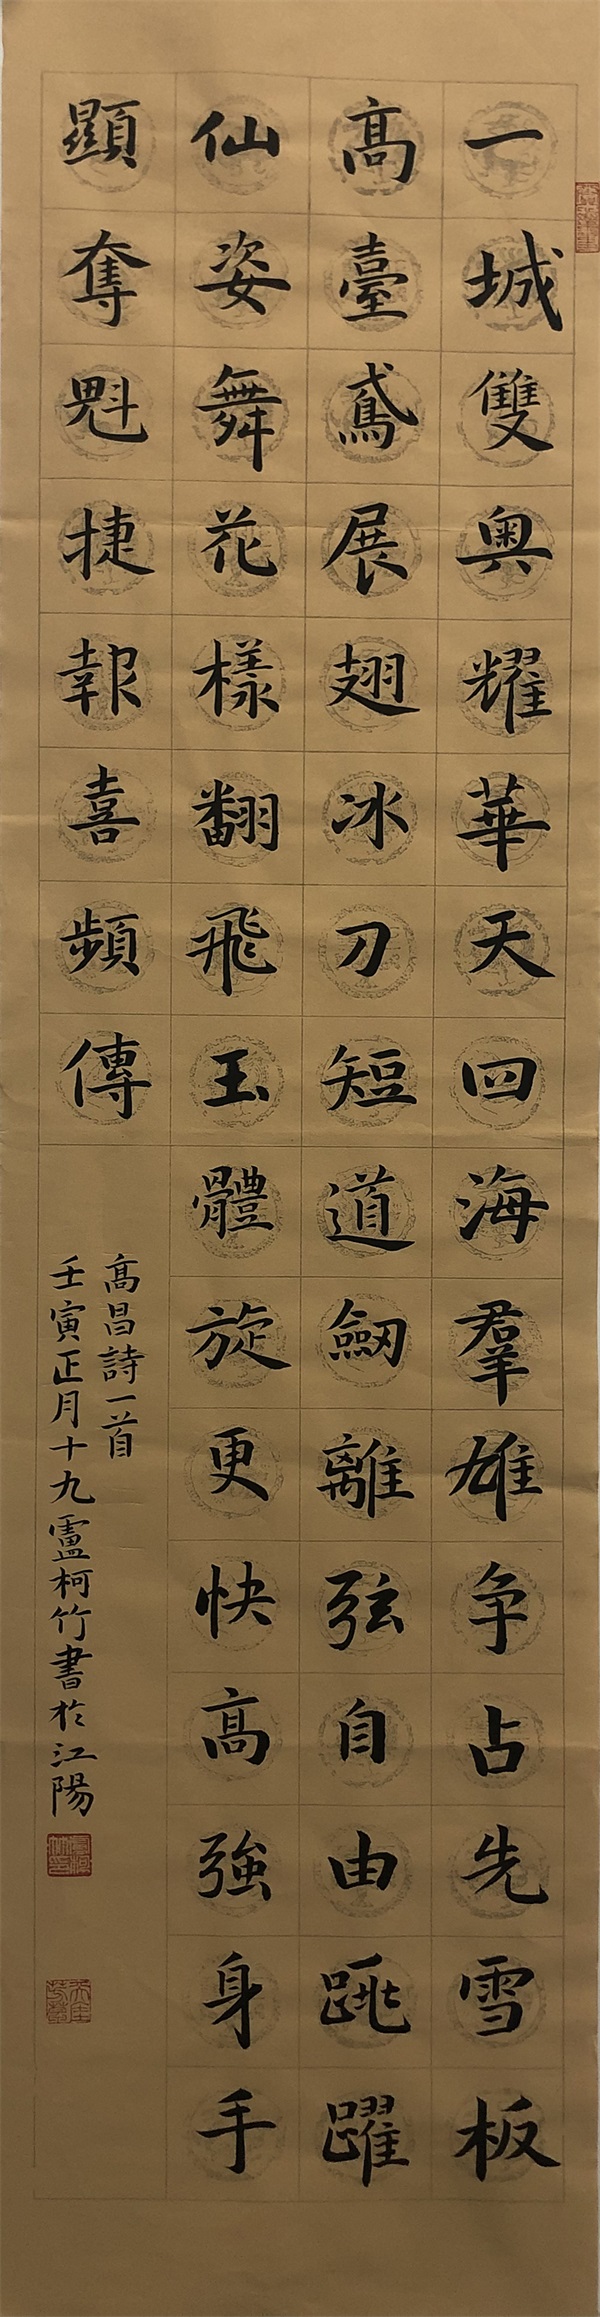 一城雙奥耀華天四海羣雄争占先雪板
高臺鳶展翅冰刀短道劒離弦自由跳躍
仙姿舞花樣翻飛玉體旋更快高強身手
顯奪魁捷報喜頻傳
高昌詩一首
壬寅正月十九盧柯竹書於江陽